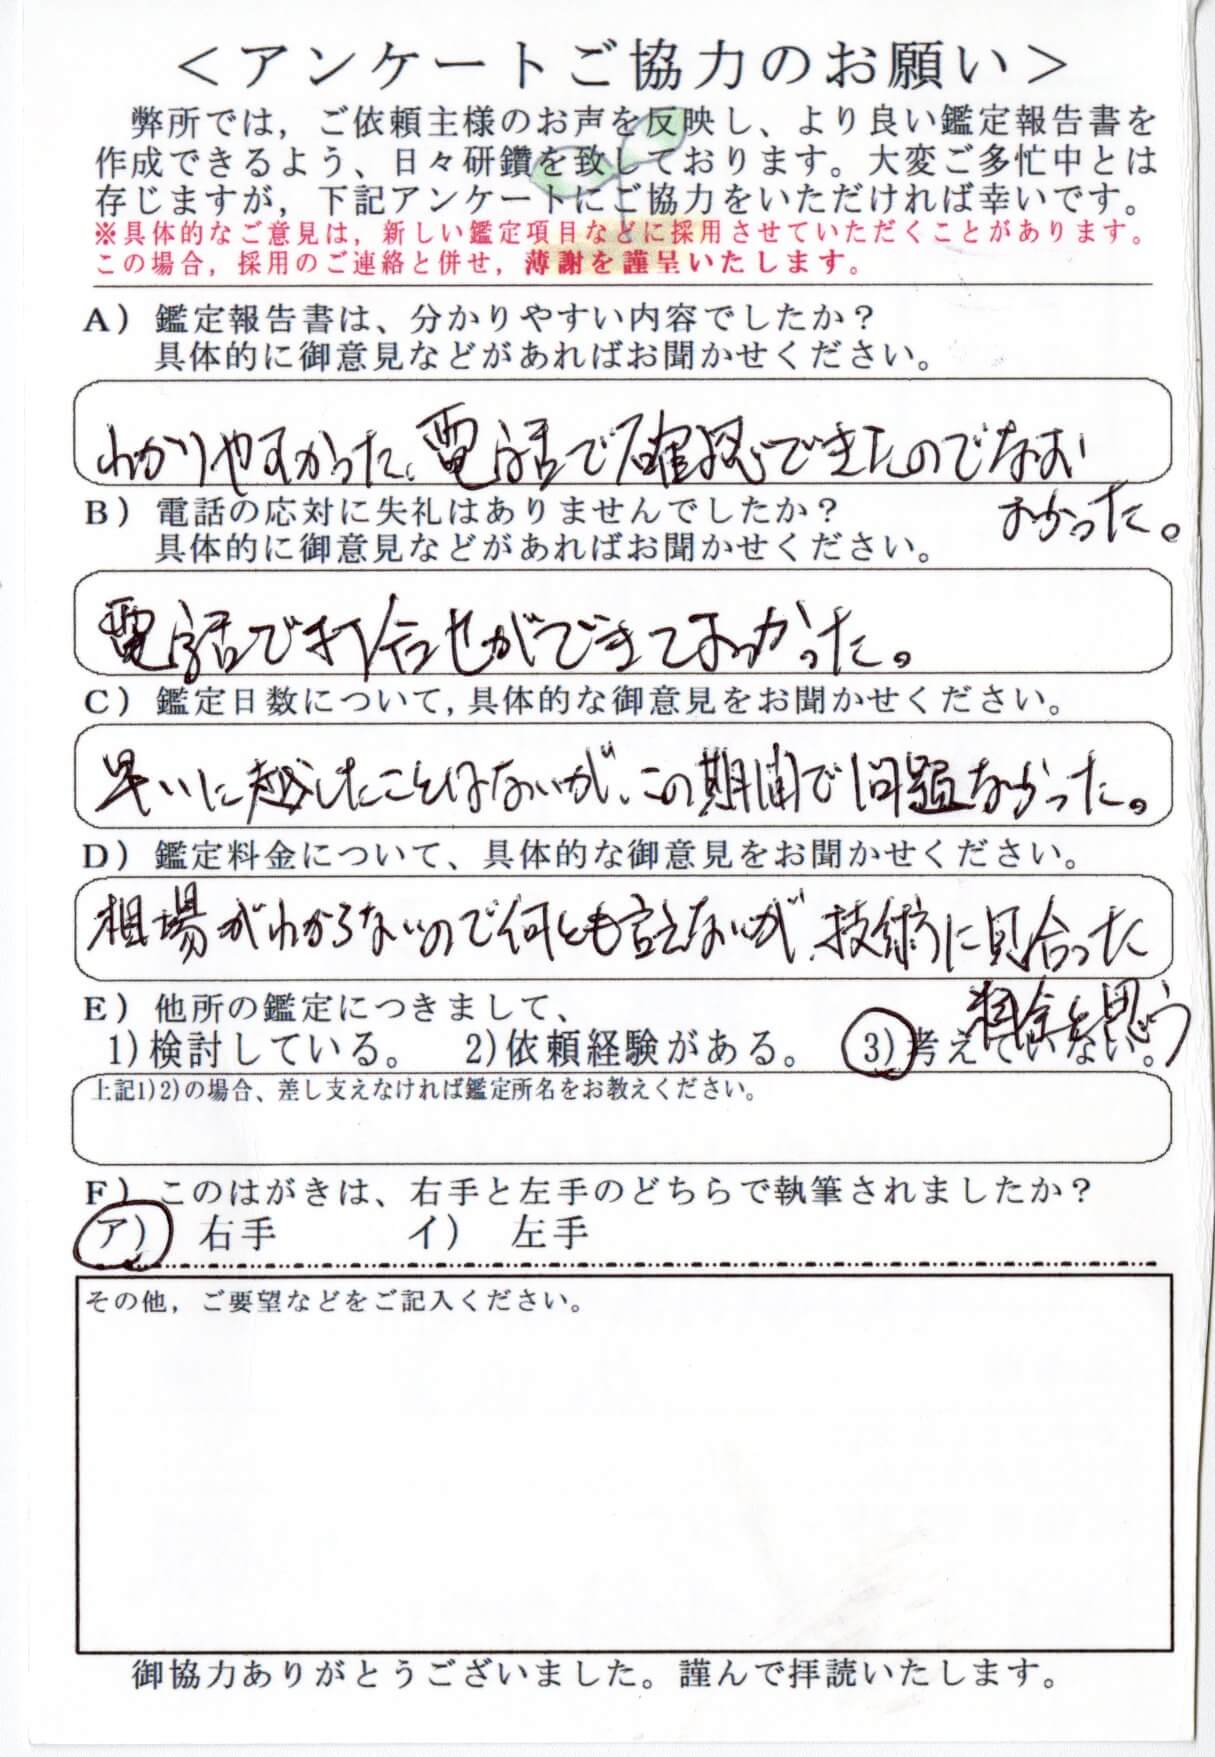 ＜アンケートご協力のお願い＞
弊所では，ご依頼主様のお声を反映し、より良い鑑定報告書を
作成できるよう、日々研鑽を致しております。大変ご多忙中とは
存じますが，下記アンケートにご協力をいただければ幸いです。
※具体的なご意見は，新しい鑑定項目などに採用させていただくことがあります。
この場合，採用のご連絡と併せ，薄謝を謹呈いたします。
A）鑑定報告書は、分かりやすい内容でしたか？
具体的に御意見などがあればお聞かせください。
わかりやすかった、電話で確認できたのでなお
よかった。
B）電話の応対に失礼はありませんでしたか？
具体的に御意見などがあればお聞かせください。
電話で打合せができてよかった。
C）鑑定日数について，具体的な御意見をお聞かせください。
早いに越したことはないが、この期間で問題なかった。
D）鑑定料金について、具体的な御意見をお聞かせください。
相場がわからないので何とも言えないが、技術に見合った
料金と思う
E）他所の鑑定につきまして、
1)検討している。 2)依頼経験がある。 3)考えていない。
上記1)2)の場合、差し支えなければ鑑定所名をお教えください。
F）このはがきは、右手と左手のどちらで執筆されましたか？
ア） 右手 イ） 左手
その他，ご要望などをご記入ください。
御協力ありがとうございました。謹んで拝読いたします。